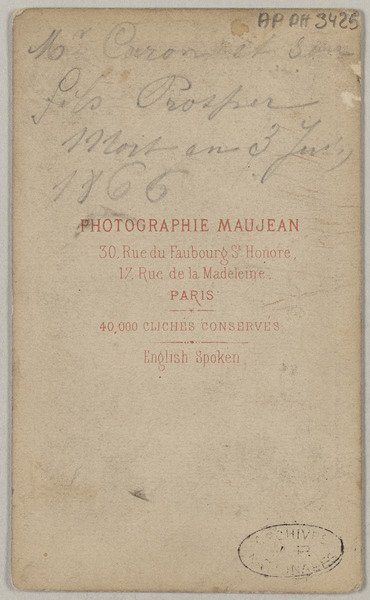 AP DH 3425
Mr Caron et Son
fils Prosper
Mort en 3 
1866
PHOTOGRAPHIE MAUJEAN
30, Rue du Faubourg St. Honoré,
17, Rue de la Madeleine.
PARIS
40,000 CLICHÉS CONSERVÉS
English Spoken
ARCHIVES
NATIONALES